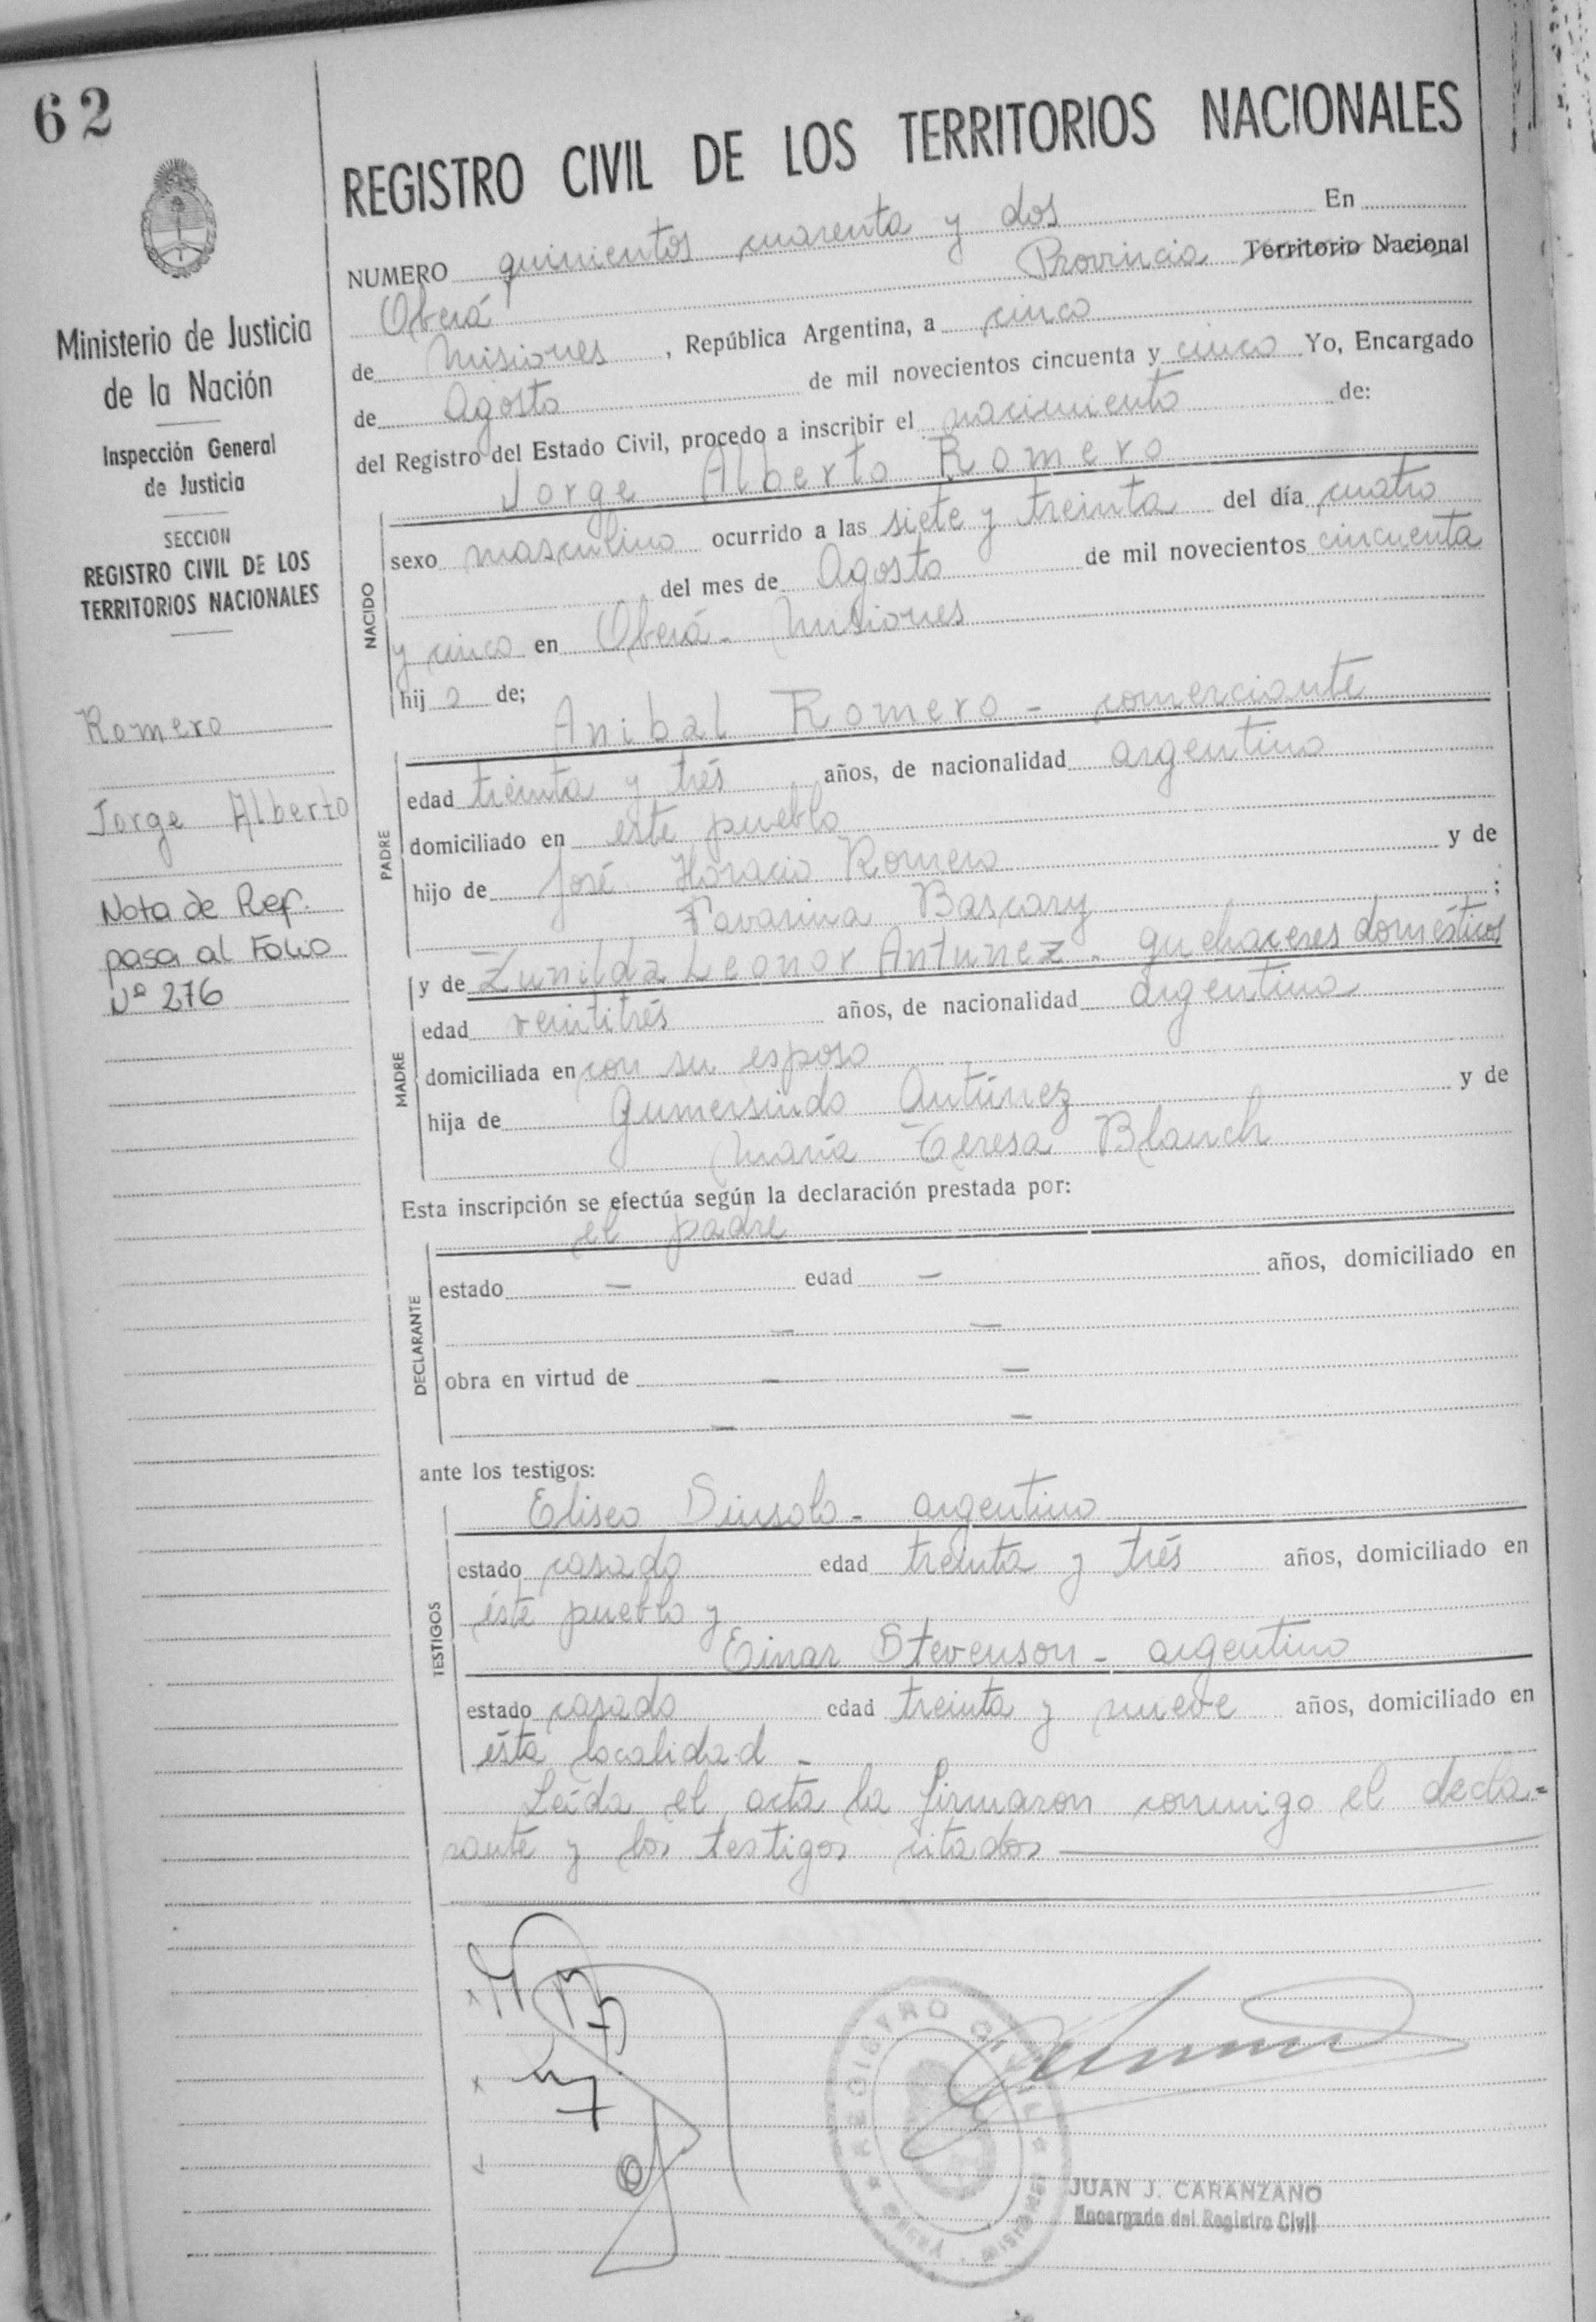 62
Ministerio de Justicia
de la Nación
Inspección General
de Justicia
SECCION
REGISTRO CIVIL DE LOS
TERRITORIOS NACIONALES
Romero
Jorge Alberto
Nota de Ref.
pasa al Folio
Nº 276
REGISTRO CIVIL DE LOS TERRITORIOS NACIONALES
NUMERO quinientos cuarenta y dos En
Oberá Provincia Territorio Nacional
de Misiones, República Argentina, a cinco
de Agosto de mil novecientos cincuenta y cinco Yo, Encargado
del Registro del Estado Civil, procedo a inscribir el nacimiento de:
Jorge Alberto Romero
NACIDO
sexo masculino ocurrido a las siete y treinta del día cuatro
del mes de Agosto de mil novecientos cincuenta
y cinco en Oberá - Misiones
hijo de;
Anibal Romero - comerciante
PADRE
edad treinta y trés años, de nacionalidad argentino
domiciliado en este pueblo
hijo de José Horacio Romero y de
Favarina Bascary ;
y de Zunilda Leonor Antunez - quehaceres domésticos
MADRE
edad veintitrés años, de nacionalidad argentina
domiciliada en con su esposo
hija de Gumersindo Antúnez y de
María Teresa Blanch
Esta inscripción se efectúa según la declaración prestada por:
el padre
DECLARANTE
estado - edad - años, domiciliado en
- -
obra en virtud de - -
- -
ante los testigos:
Eliseo Dinsolo - argentino
TESTIGOS
estado casado edad treinta y trés años, domiciliado en
éste pueblo y
Einar Stevenson - argentino
estado casado edad treinta y nueve años, domiciliado en
ésta localidad -
Leída el acta la firmaron conmigo el decla=
rante y los testigos citados
REGISTRO CIVIL
JUAN J. CARANZANO
Encargado del Registro Civil